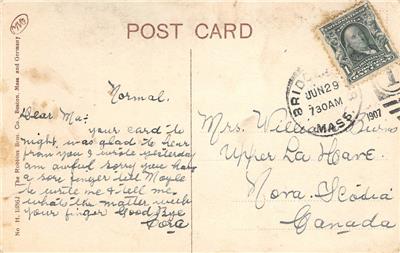 POST CARD
No H. 15862 The Robbins Bros. Co., Boston, Mass. and Germany
BRIDG
JUN 29
730AM
MASS.
1907
1
Normal.
Dear Ma:-
your card to
night, was glad to hear
from you I wrote yesterday
am awful sorry you have
a sore finger tell
to write me & tell me
what's the matter with
your finger Good Bye
Cora
Mrs. William Burns
Upper La Have
Nova Scotia
Canada